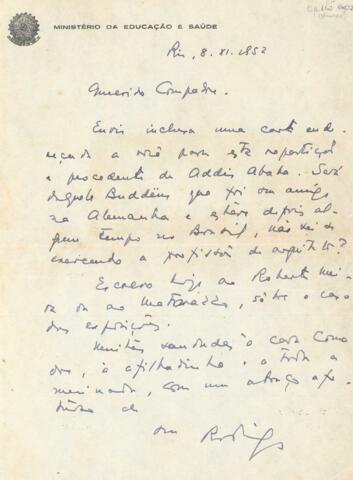 MINISTÉRIO DA EDUCAÇÃO E SAÚDE
Rio, 8.XI.1952
Querido Compadre.
Envio inclusa uma carta ende
reçada a você para esta repartição
e procedente de Addis Ababa. Será
daquele Buddëus que foi seu amigo
na Alemanha e esteve depois al-
gum tempo no Brasil, não sei se
exercendo a profissão de arquiteto?
Escrevo hoje ao Roberto
ou ao Matarazzo, sôbre o caso
das exposições.
Muitas saudades à cara Coma
dre, à afilhadinha e a toda a
meninada, com um abraço afe
tuoso do
seu Rodrigo